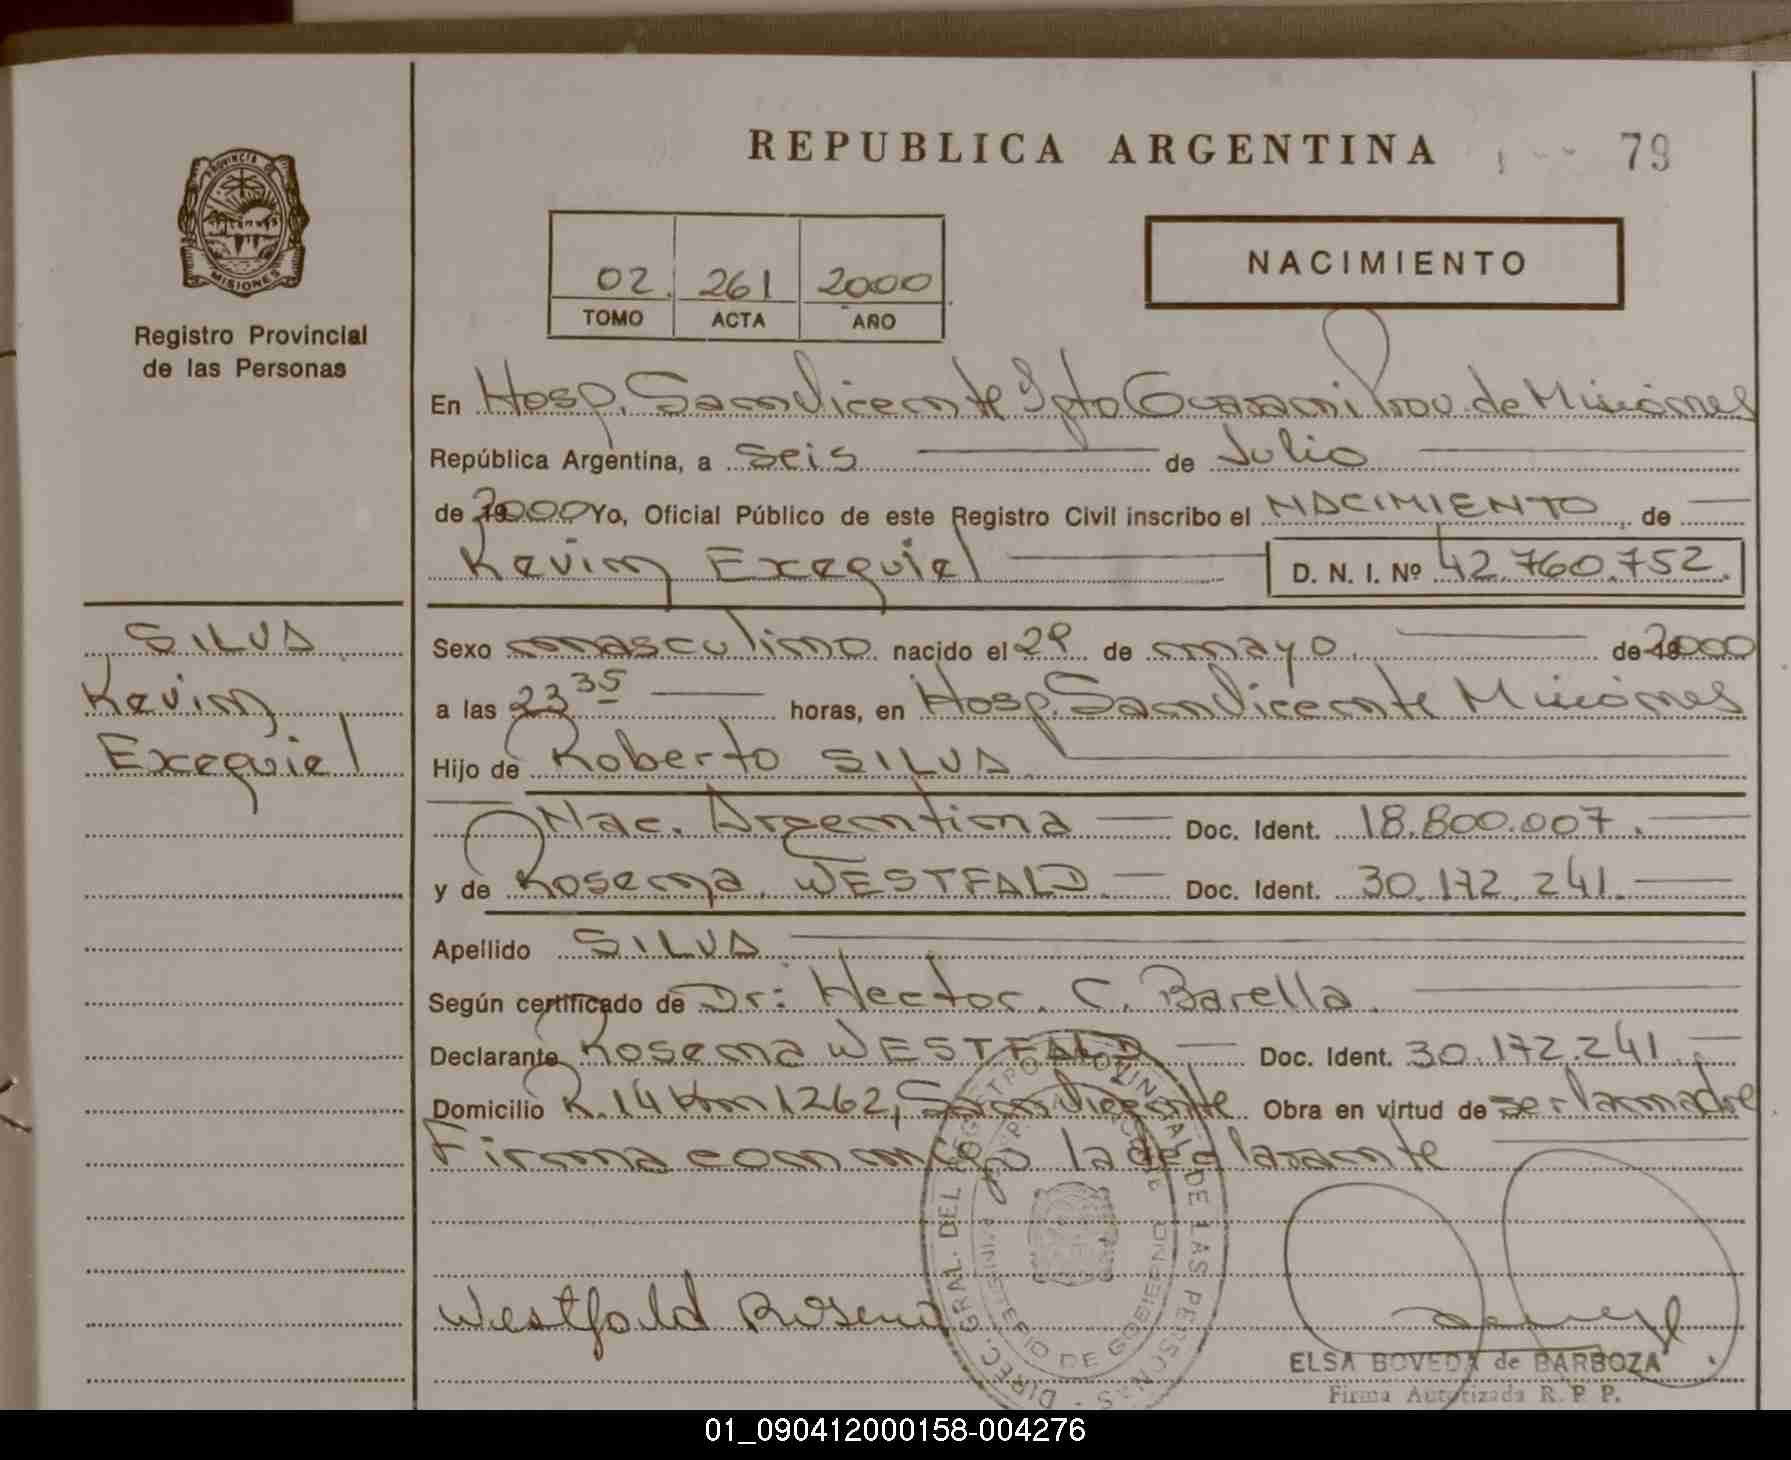 REPUBLICA ARGENTINA
79
PROVINCIA DE MISIONES
Registro Provincial
de las Personas
02 261 2000
TOMO ACTA AÑO
NACIMIENTO
En Hosp. San Vicente Dpto Guarani Prov. de Misiones
República Argentina, a seis de Julio
de 2000 Yo, Oficial Público de este Registro Civil inscribo el NACIMIENTO de
Kevin Exequiel D. N. I. Nº 42.760.752
SILVA
Kevin
Exequiel
Sexo masculino nacido el 29 de mayo de 2000
a las 23 35 horas, en Hosp. San Vicente Misiones
Hijo de Roberto SILVA
Nac. Argentina Doc. Ident. 18.800.007.
y de Rosena WESTFALD Doc. Ident. 30.172.241.
Apellido SILVA
Según certificado de Dr: Hector. C. Barella
Declarante Rosena WESTFALD Doc. Ident. 30.172.241.
Domicilio R. 14 Km 1262, San Vicente Obra en virtud de ser la madre
Firma conmigo la declarante
DIREC. GRAL. DEL REGISTRO PROVINCIAL DE LAS PERSONAS
MINISTERIO DE GOBIERNO
Westfald Rosena
ELSA BOVEDA de BARBOZA
Firma Autorizada R. P. P.
01_090412000158-004276